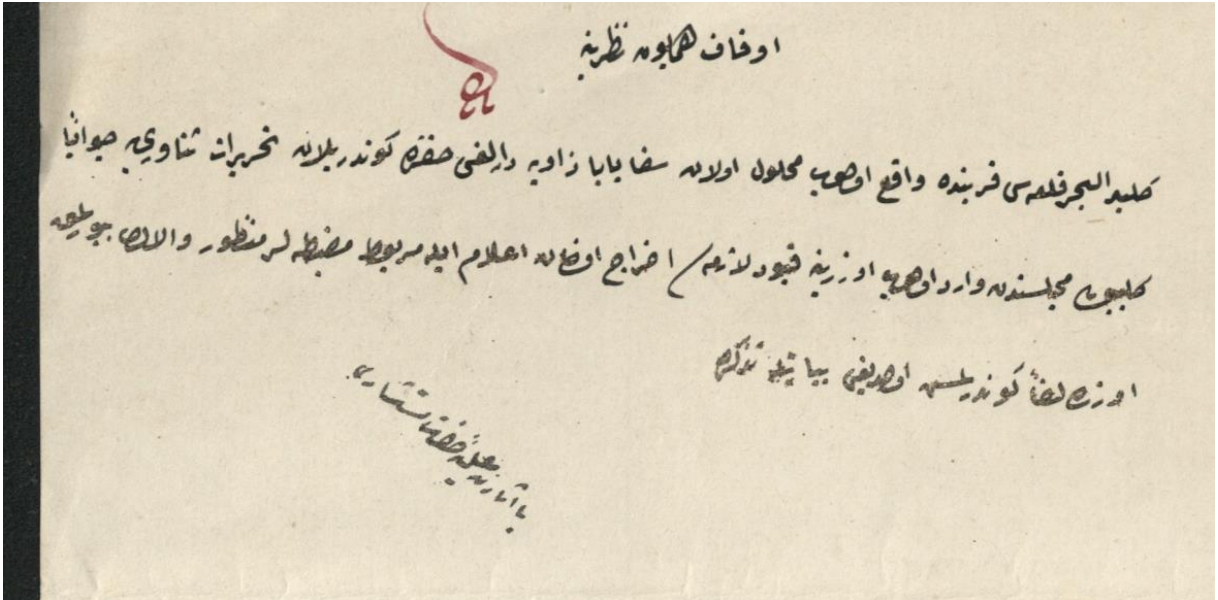 اوقاف همايون نظارتنه
كليد البحر قلعه سى قربنده واقع اولوب محلول اولان سفا بابا زاويه دارلغى حقنده كوندريلان تحريرات ثناورى جوابًا
كليبولى مجلسندن وارد اولوب اوزرينه قيود لازمه سى اخراج اولنان اعلام ايله مربوط مضبطه لر منظور والالرى بيورلمق
اوزره لفًا كوندرلمش اولديغى بيانيله تذكره